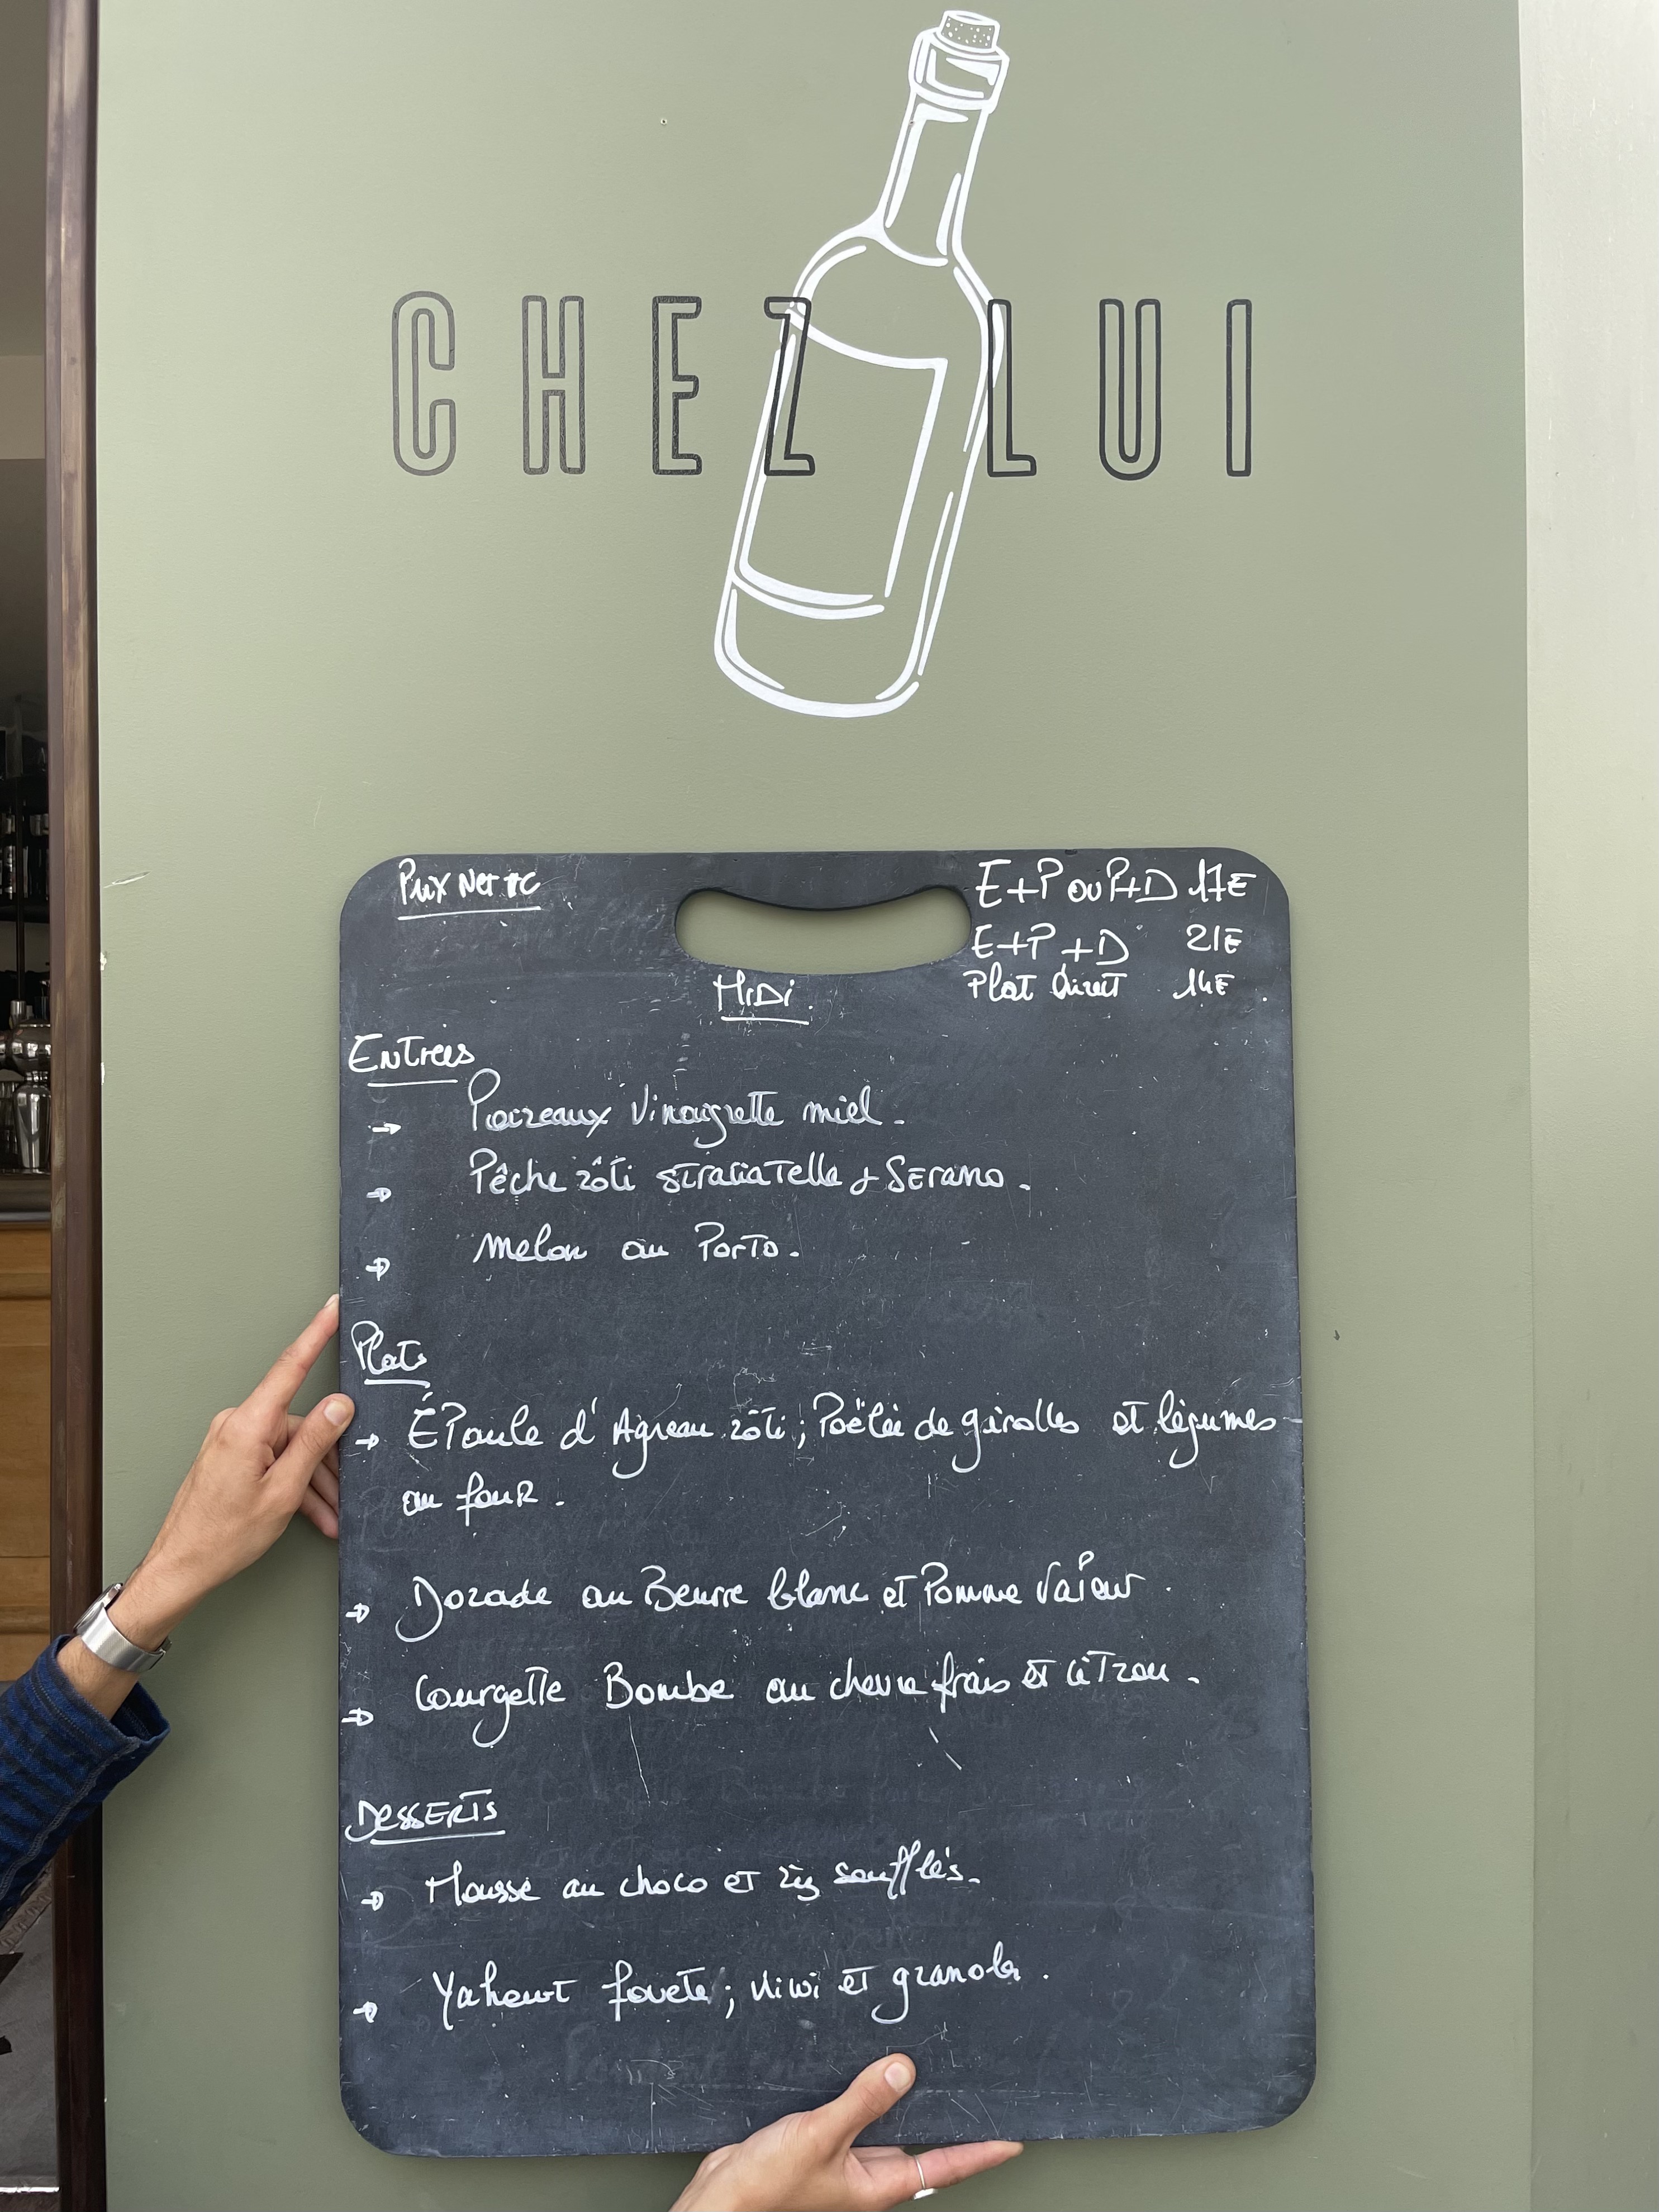 CHEZ LUI
Prix Net TC
E+P ou P+D 17E
E+P+D 21E
Plat Direct 14E
MiDi
Entrées
→ Poireaux Vinaigrette miel.
→ Pêche rôti straciatelle + Serano.
→ Melon au Porto.
Plats
→ ÉPaule d'Agneau rôti ; Poëlée de girolles et légumes
au four.
→ Dorade au Beurre blanc et Pomme VaPeur.
→ Courgette Bombe au chevre frais et citron.
DESSERTS
→ Mousse au choco et riz soufflés.
→ Yahourt foueté ; kiwi et granola.